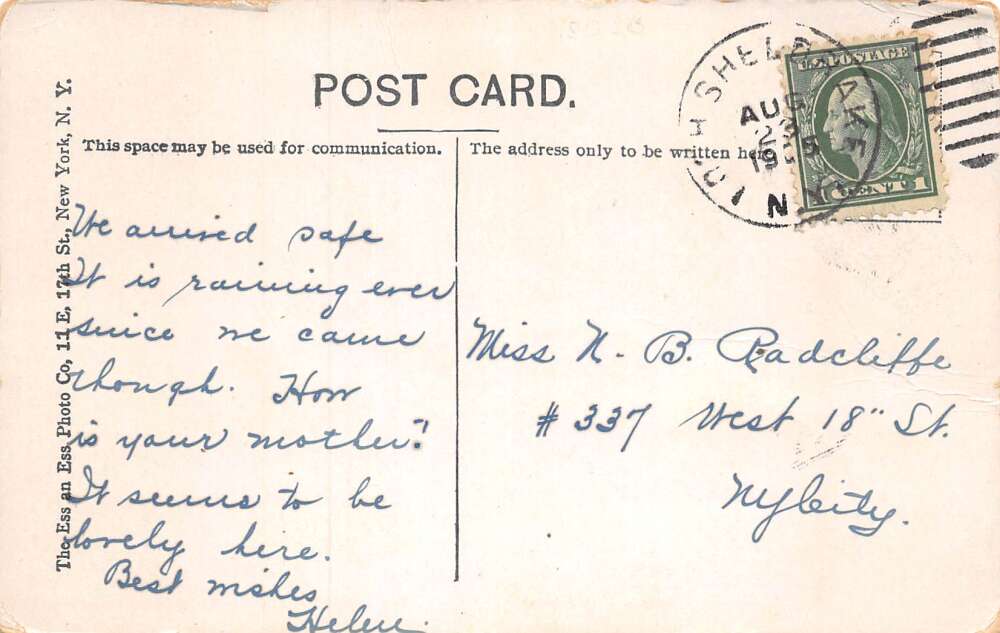 POST CARD.
This space may be used for communication.
The address only to be written here
The Ess an Ess Photo Co, 11 E, 17th St., New York, N. Y.
We arrived safe
It is raining ever
since we came
though. How
is your mother?
It seems to be
lovely here.
Best wishes
Helen.
Miss N. B. Radcliffe
# 337 West 18" St.
NyCity.
SHELDRAKE
AUG
23
N.Y.
U.S. POSTAGE
1 CENT 1